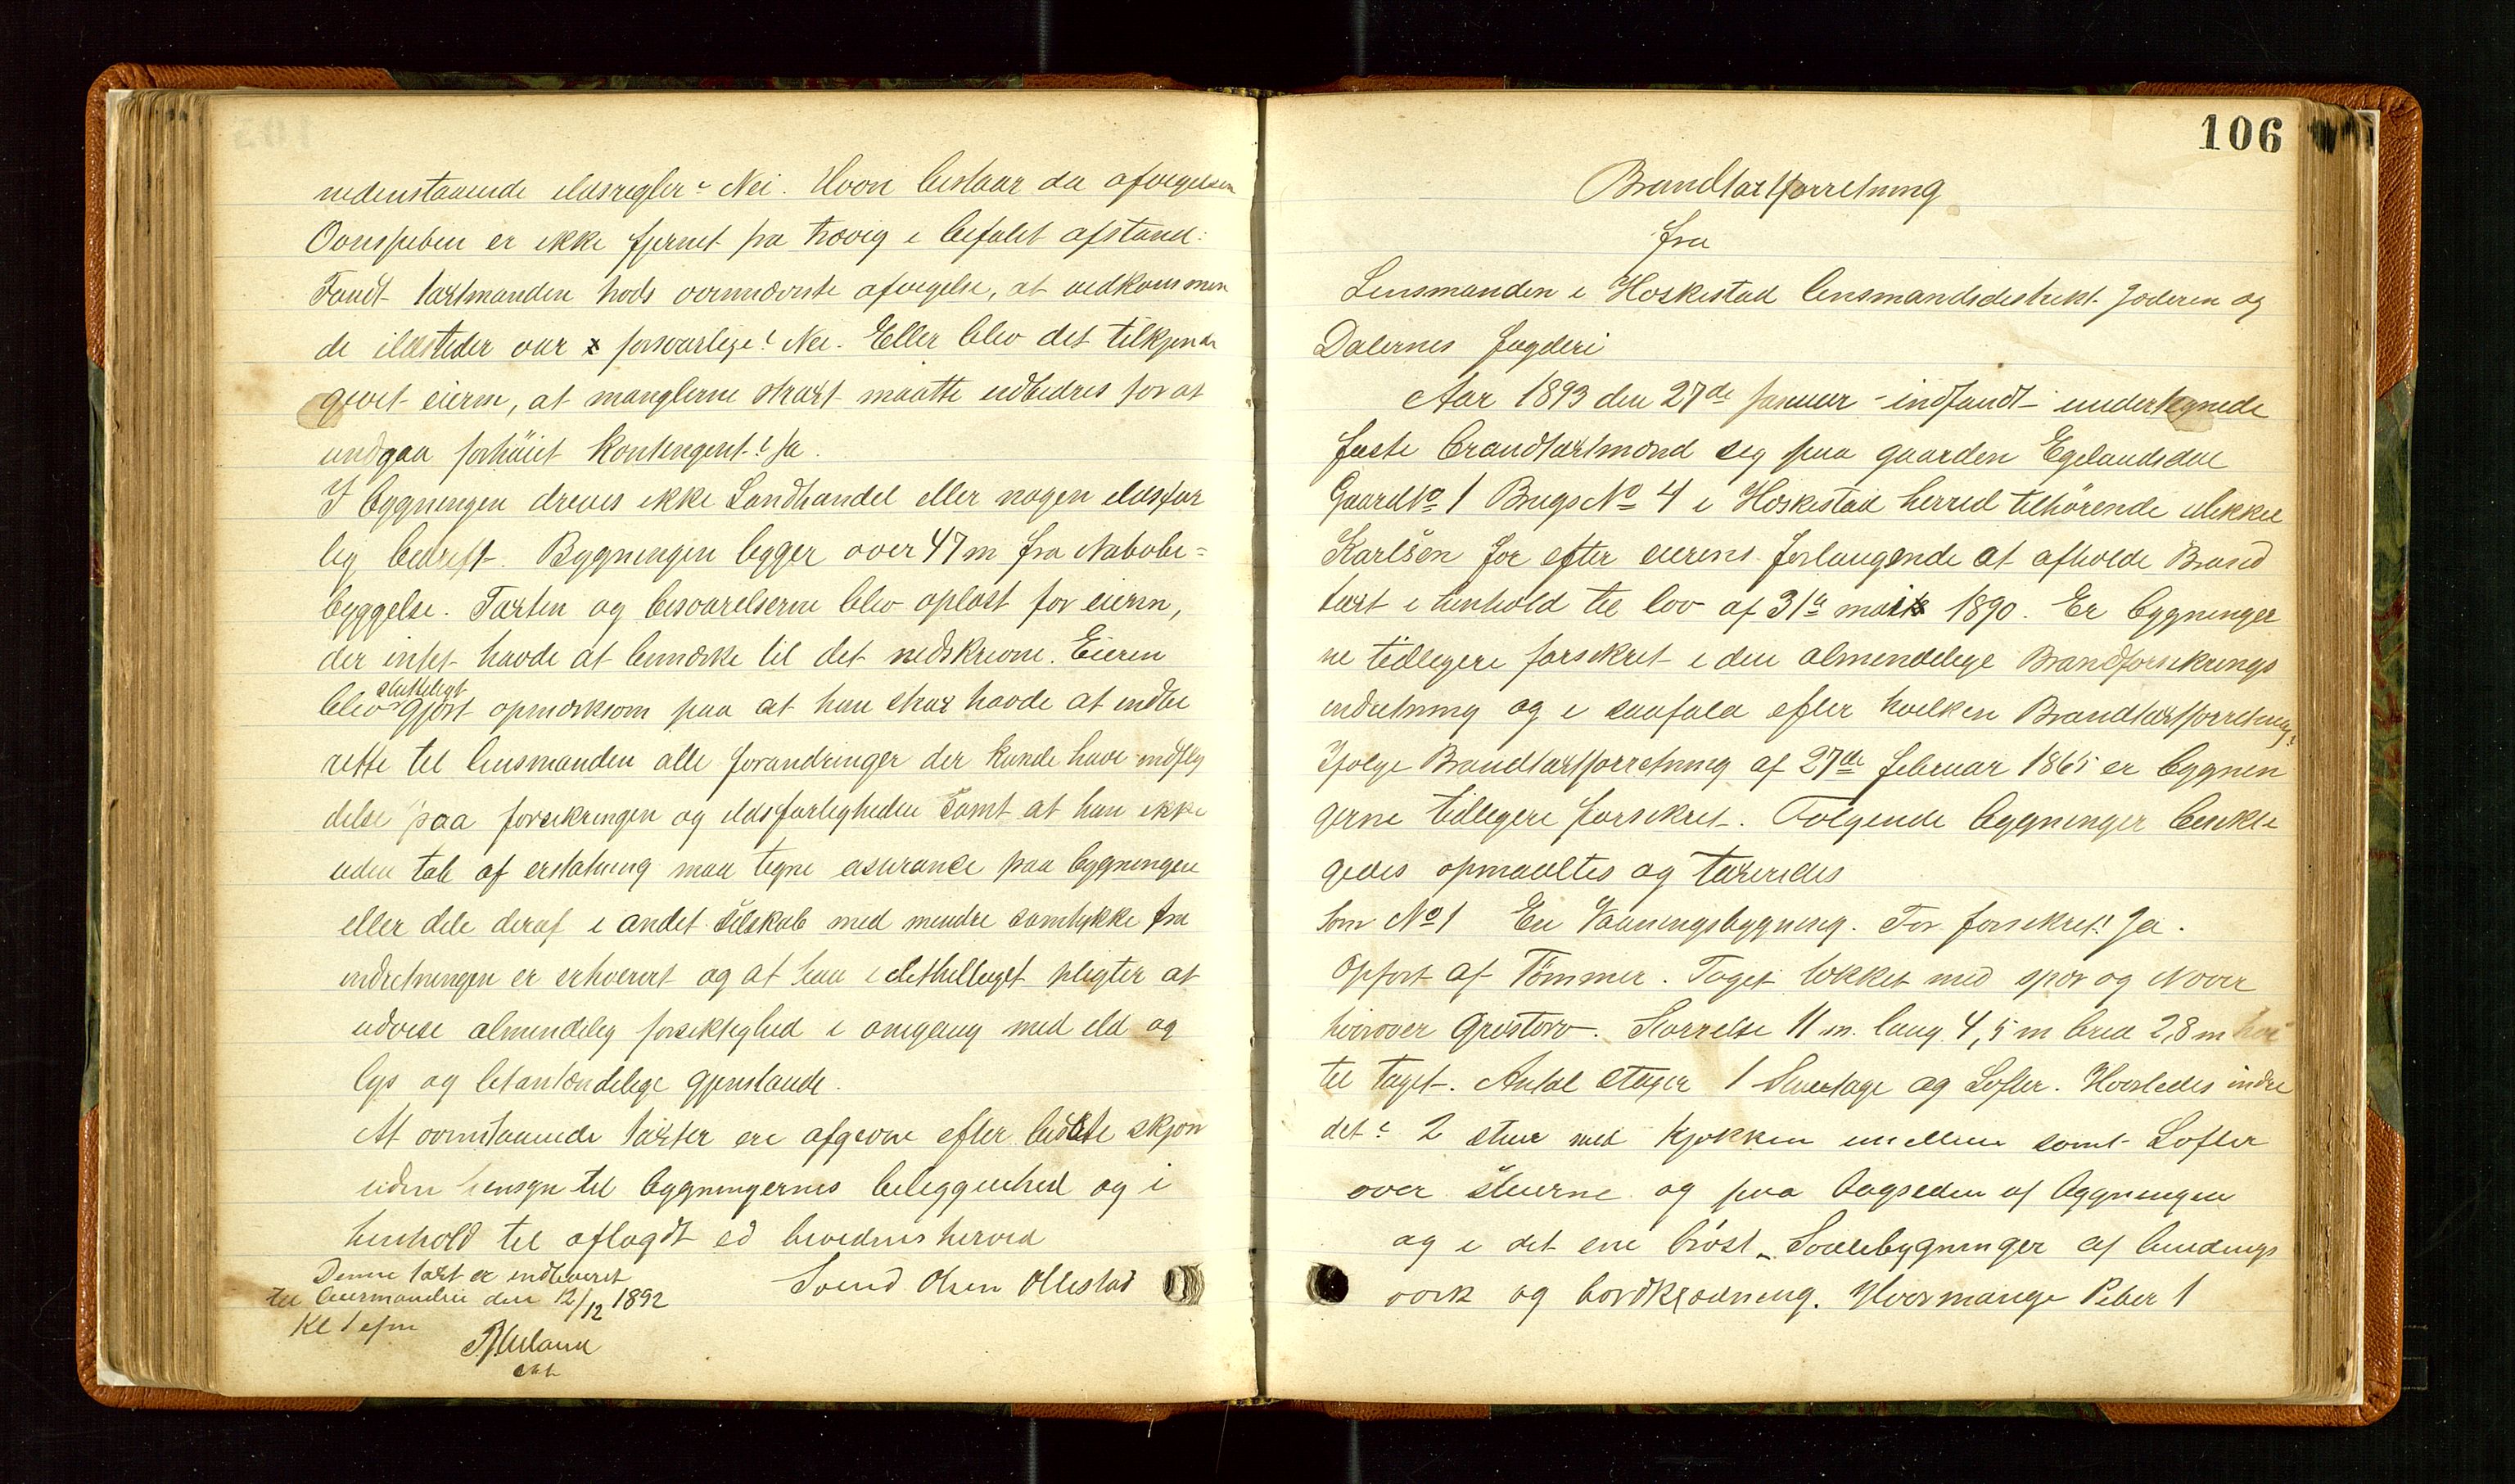 nedenstaaende ildsregler? Nei. Hvori bestaar da afvigelsen
Ovnspiben er ikke fjernet fra trævig i befalet afstand:
Fandt taxtmanden trods ovennævnte afvigelse, at vedkommen
de ildsteder var x forsvarlige? Nei. Eller blev det tilkjende
givet eieren, at manglerne strax maatte udbedres for at
undgaa forhöiet Kontingent? Ja.
I bygningen drives ikke Landhandel eller nogen ildsfar
lig bedrift. Bygningen ligger over 47 m fra Nabobe=
byggelse. Taxten og besvarelserne blev oplæst for eieren,
der intet havde at bemærke til det nedskrevne. Eieren
blev slutteligt gjort opmærksom paa at han strax havde at indbe
rette til lensmanden alle forandringer der kunde have indfly
delse paa forsikringen og ildsfarligheden samt at han ikke
uden tab af erstatning maa tegne assurance paa bygningen
eller dele deraf i andet selskab med mindre samtykke fra
indretningen er erhvervet og at han i dethelletaget pligter at
udvise almindelig forsiktighed i omgang med ild og
lys og letantændelige gjenstande.
At ovenstaaende taxter ere afgivne efter bedste skjøn
uden hensyn til bygningernes beliggenhed og i
henhold til aflagdt ed bevidnes herved
Svend Olsen Ollestad
Denne taxt er indleveret
til lensmanden den 12/12 1892
Kl 1 efm
106
Brandtaxtforretning
fra
Lensmanden i Heskestad lensmandsdistrikt Jæderen og
Dalernes fogderi
Aar 1893 den 27de januar indfandt undertegnede
faste brandtaxtmænd seg paa gaarden Egelandsdal
Gaard No 1 Brugs No 4 i Heskestad herred tilhörende Mikkel
Karlsen for efter eierens forlangende at afholde Brand
taxt i henhold til lov af 31te mai 1890. Er bygninger
ne tidligere forsikret i den almindelige Brandforsikrings
indretning og i saafald efter hvilken Brandtaxtforretning?
Ifølge Brandtaxtforretning af 27de februar 1865 er bygnin
gerne tidligere forsikret. Følgende bygninger besikti
gedes opmaaltes og taxeredes
som No 1 En Vaaningsbygning. Før forsikret? Ja.
Opført af Tömmer. Taget tekket med spon og Næver
hvorover Græstorv. Størrelse 11 m. lang 4,5 m bred 2,8 m höi
til taget. Antal etager 1 Stuetage og Lofter. Hvorledes indre
det? 2 stuer med Kjøkken imellem samt Lofter
over stuerne og paa bagsiden af bygningen
og i det ene bröst Svalebygninger af bindings
værk og bordklædning. Hvormange Piber 1